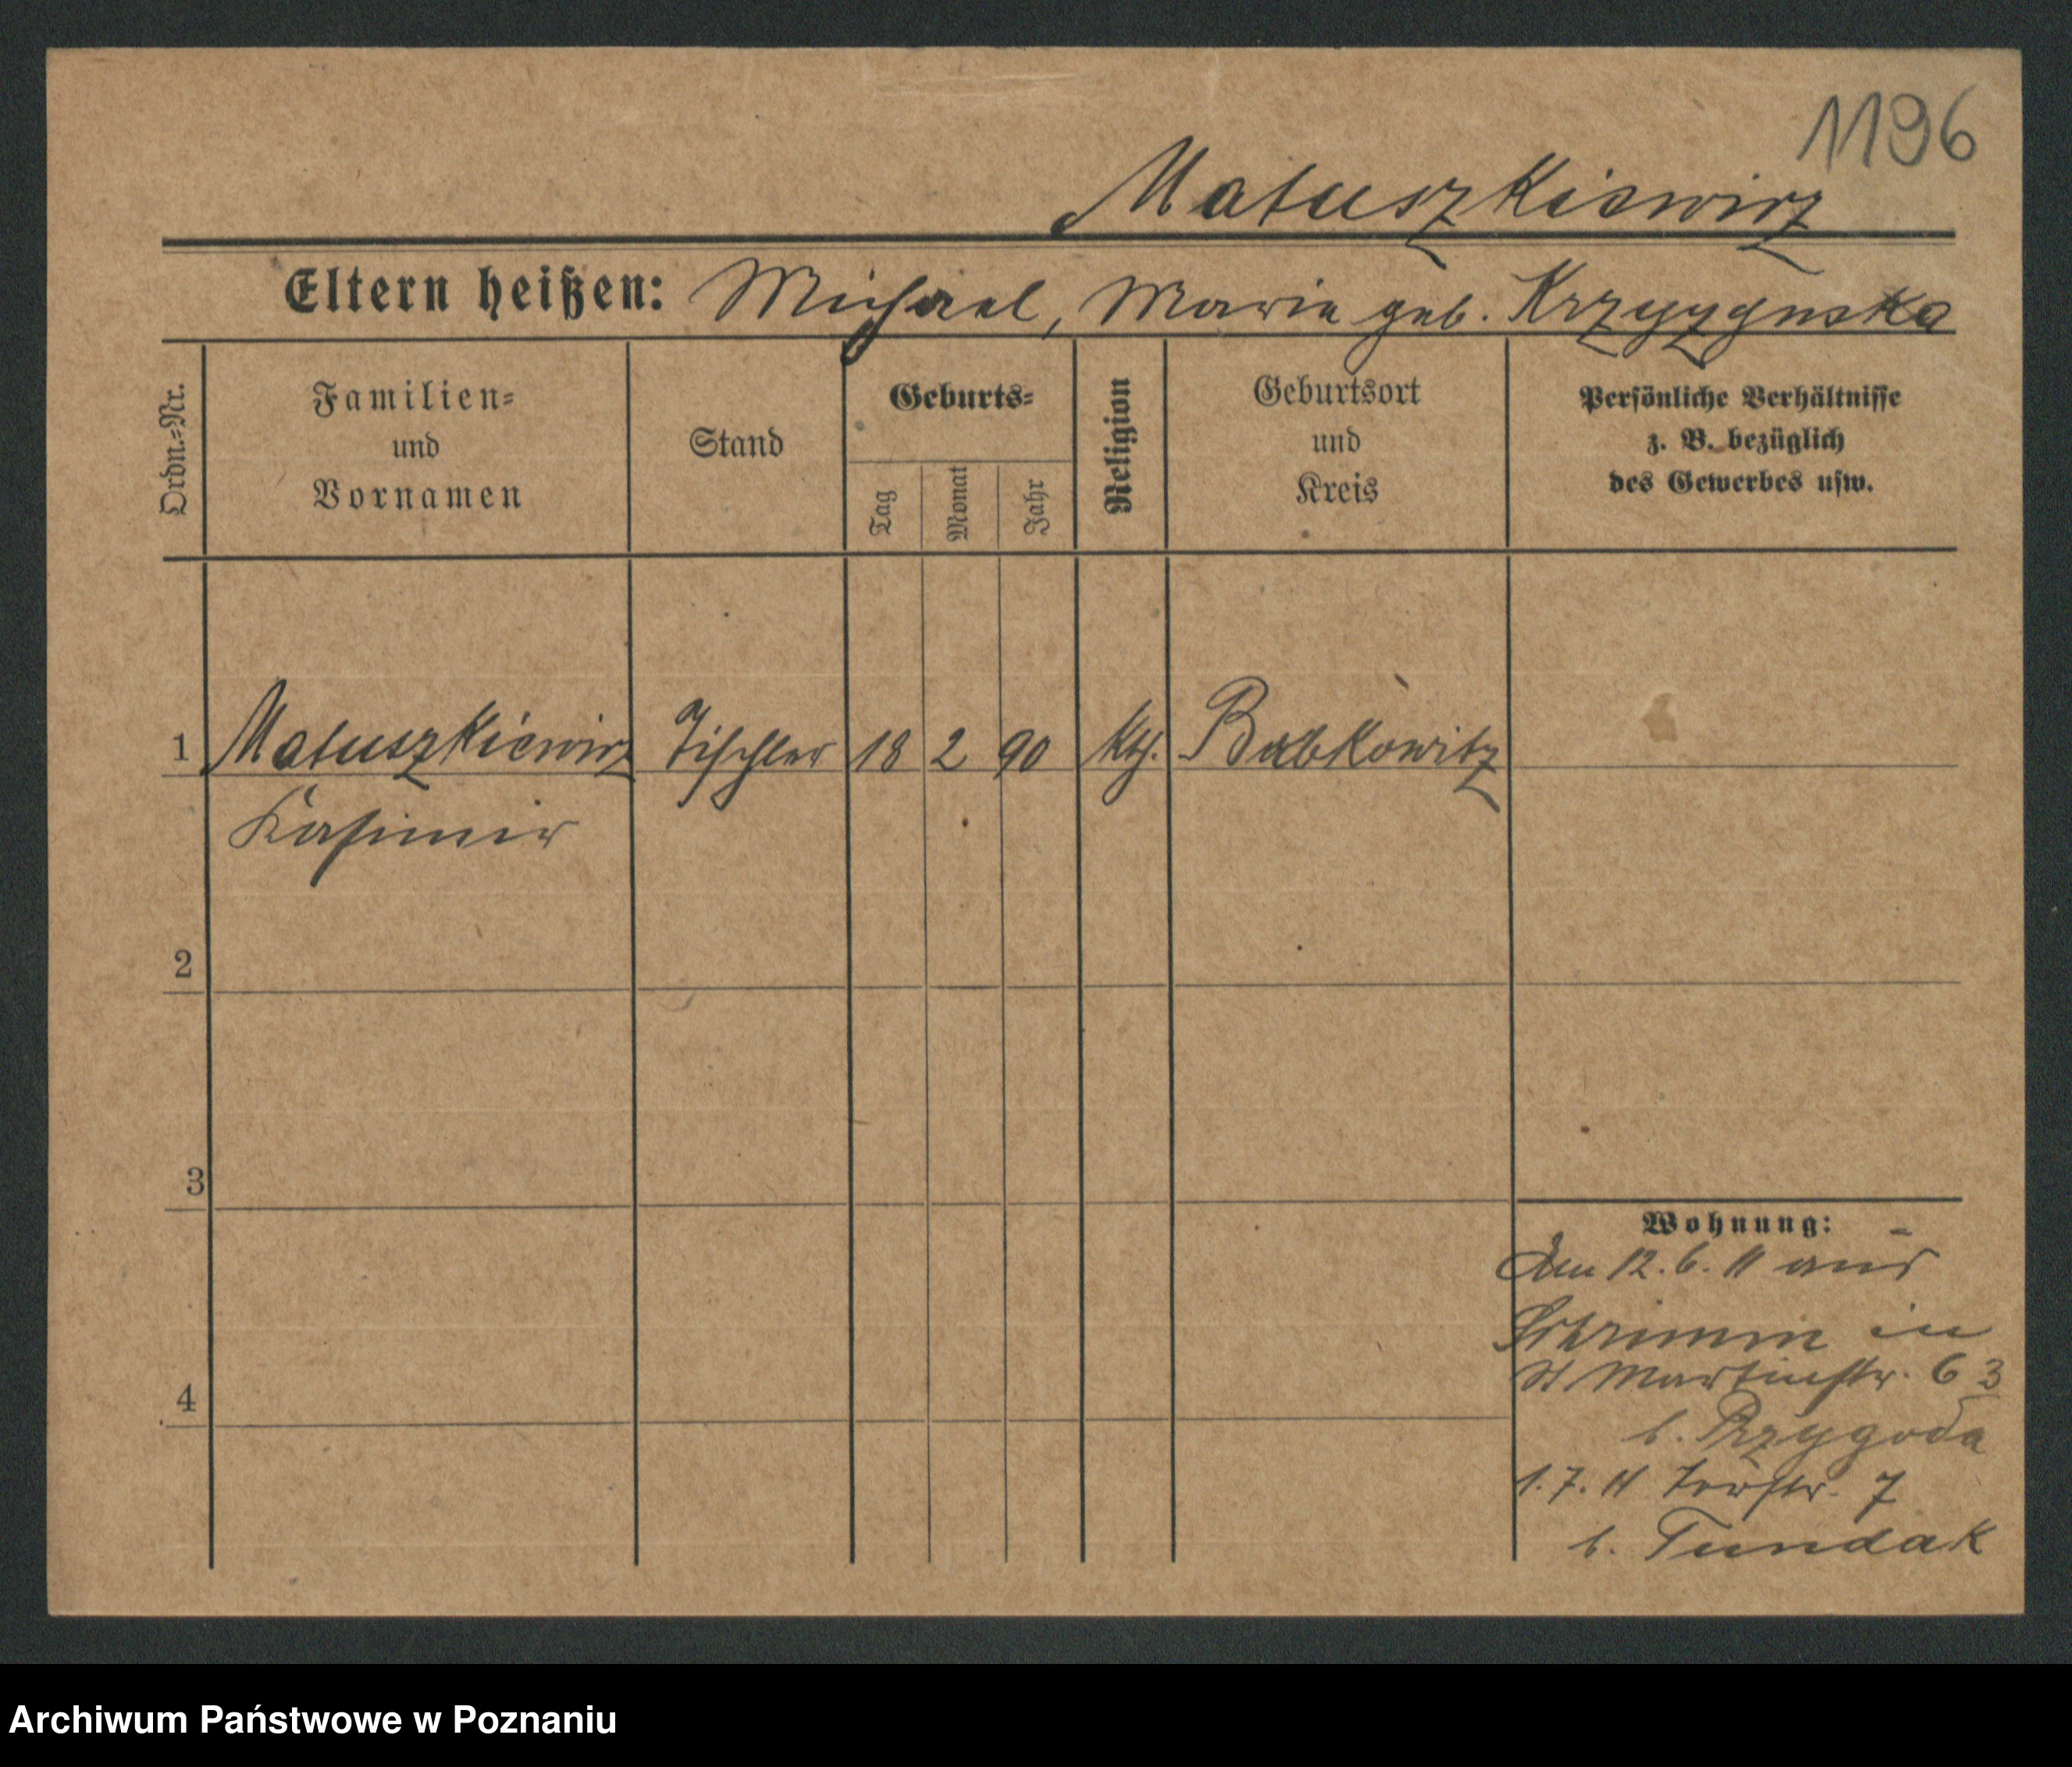 1196
Matuszkiewicz
Eltern heißen: Michael, Maria geb. Krzyzynska
Ordn.-Nr.
Familien-
und
Vornamen
Stand
Geburts-
Tag
Monat
Jahr
Religion
Geburtsort
und
Kreis
Persönliche Verhältnisse
z. B. bezüglich
des Gewerbes usw.
1 Matuszkiewicz Tischler 18 2 90 kth. Babkowitz
Kasimir
2
3
4
Wohnung:
Am 12.6.11 aus
Schrimm in
St Martinstr. 63
b. Przygoda
1.7.11 Torstr. 7
b. Tundak
Archiwum Państwowe w Poznaniu